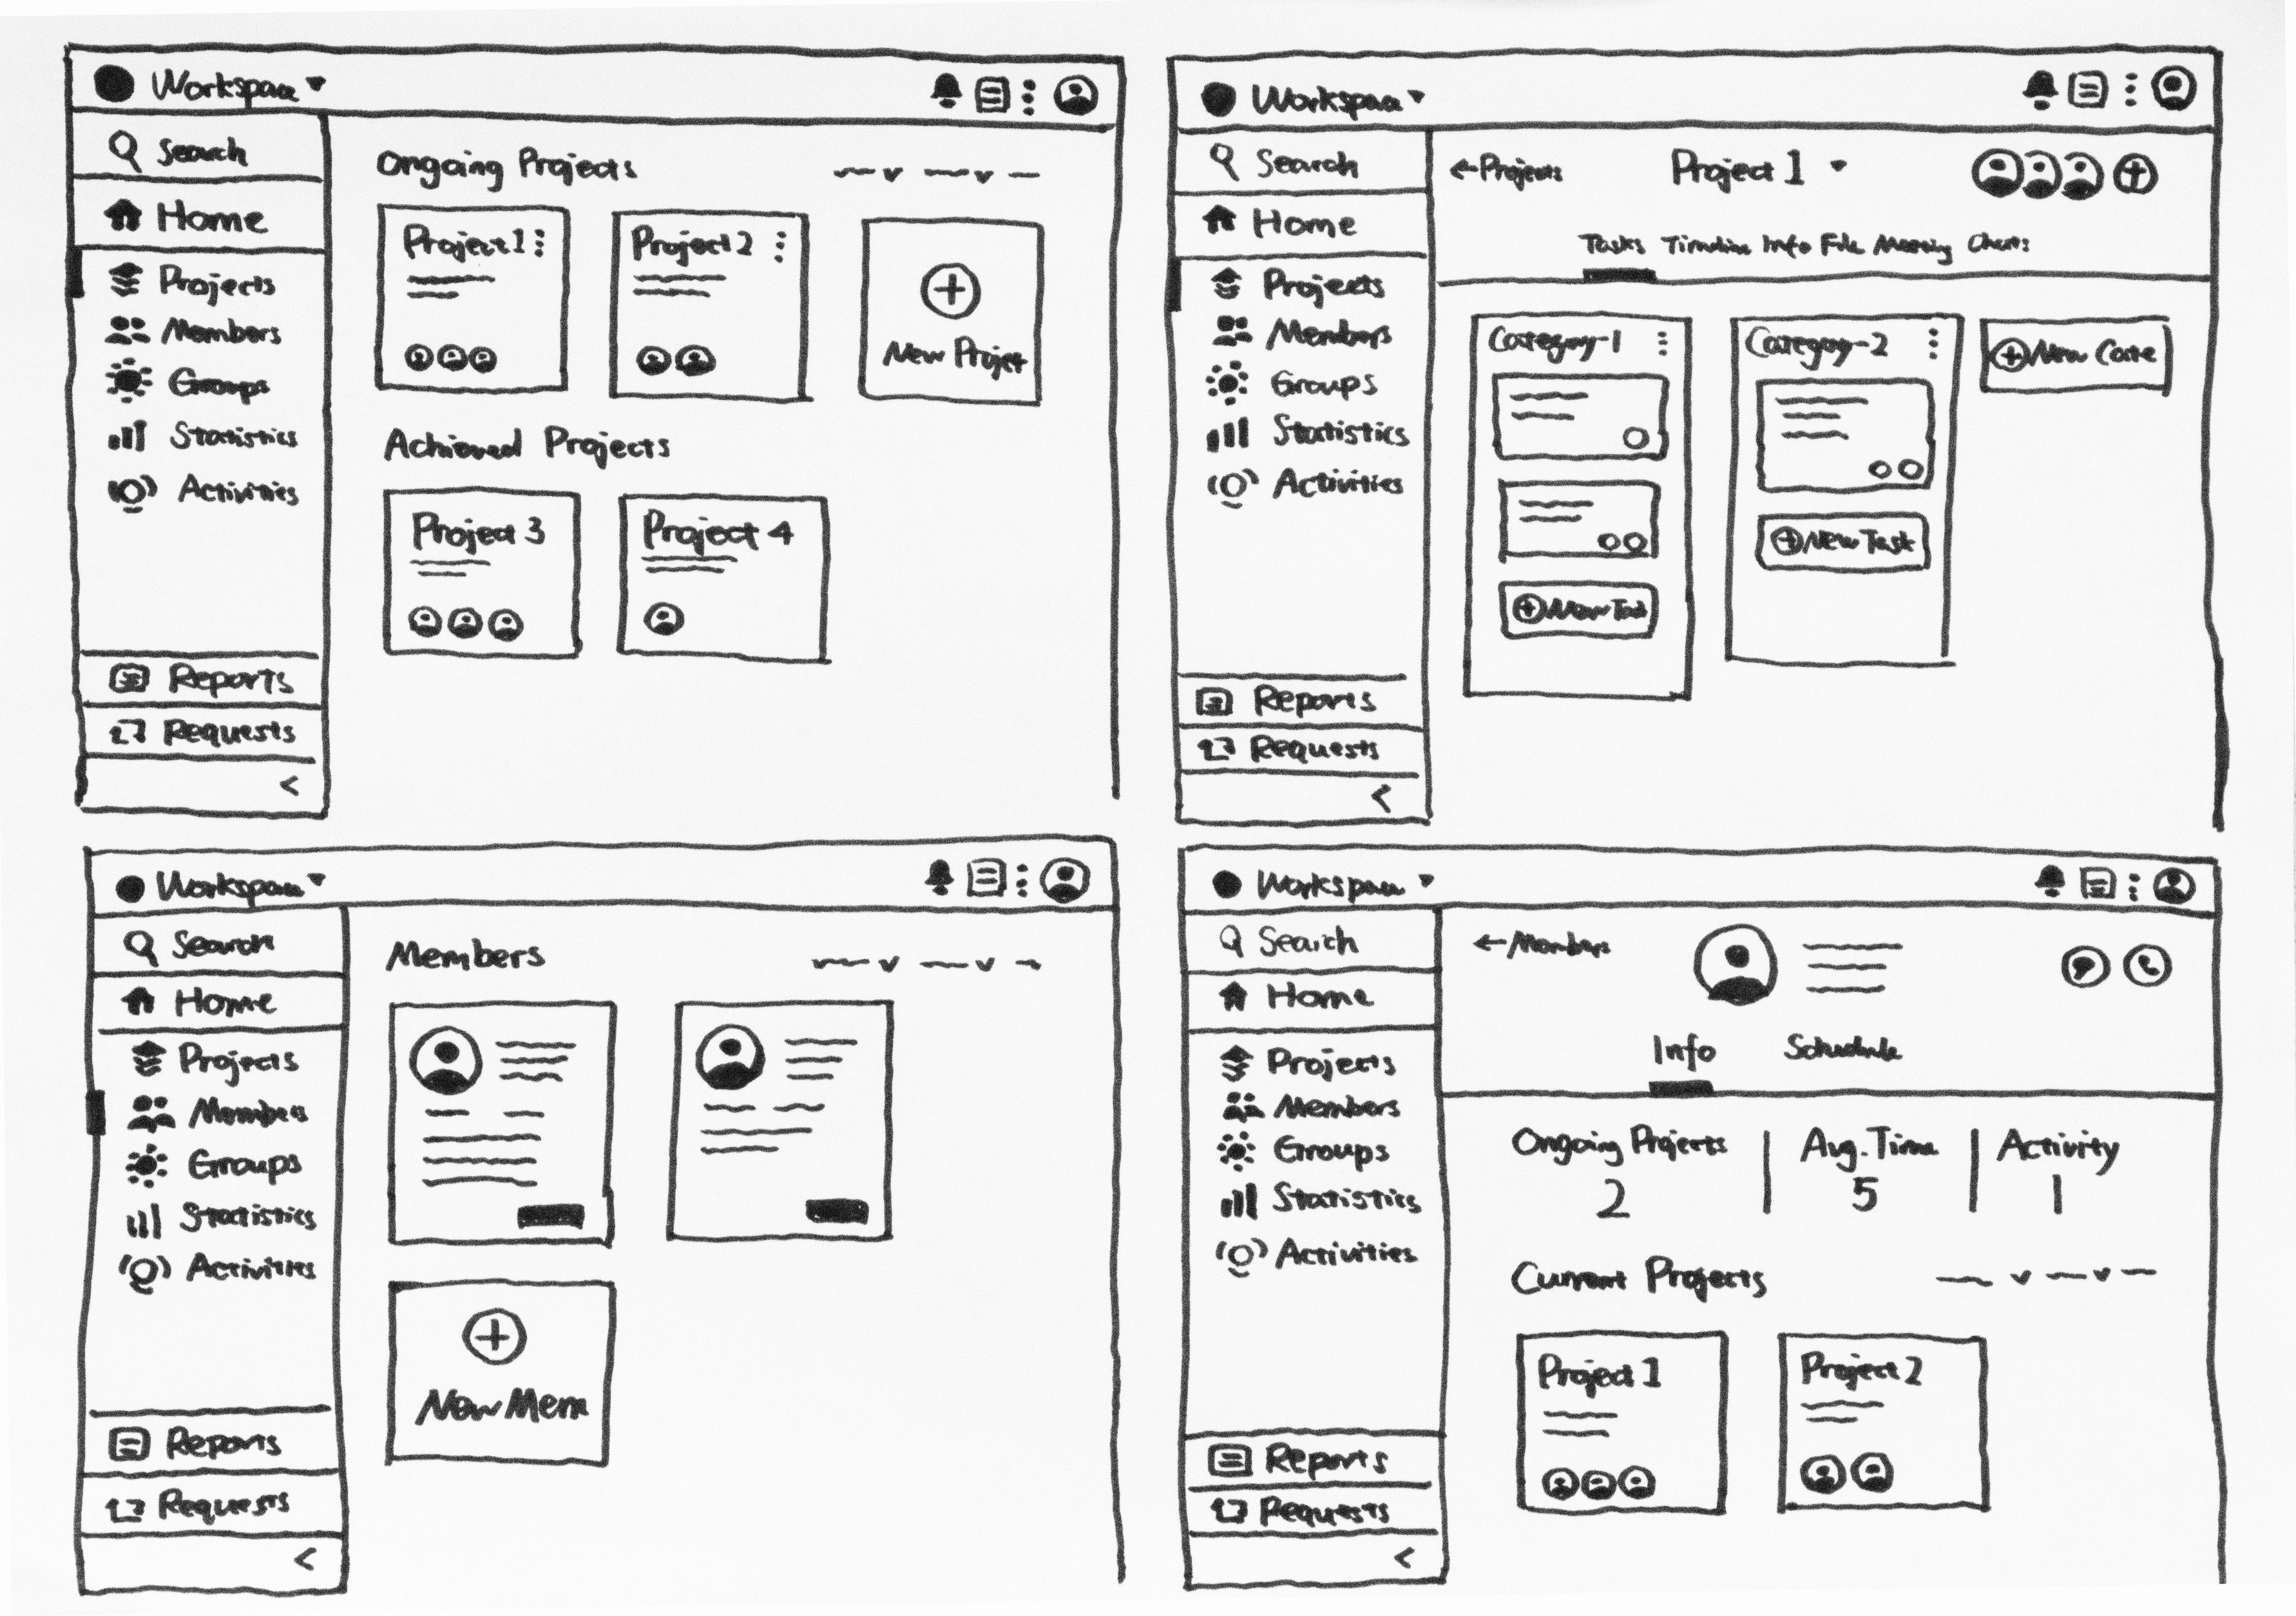 Workspace
Search
Home
Projects
Members
Groups
Statistics
Activities
Reports
Requests
<
Ongoing Projects
Project 1
Project 2
New Project
Achieved Projects
Project 3
Project 4
Workspace
Search
Home
Projects
Members
Groups
Statistics
Activities
Reports
Requests
<
←Projects
Project 1
Tasks Timeline Info File Meeting Charts
Category-1
New Task
Category-2
New Task
New Cate
Workspace
Search
Home
Projects
Members
Groups
Statistics
Activities
Reports
Requests
<
Members
New Mem
Workspace
Search
Home
Projects
Members
Groups
Statistics
Activities
Reports
Requests
<
←Members
Info Schedule
Ongoing Projects | Avg. Time | Activity
2 5 1
Current Projects
Project 1
Project 2